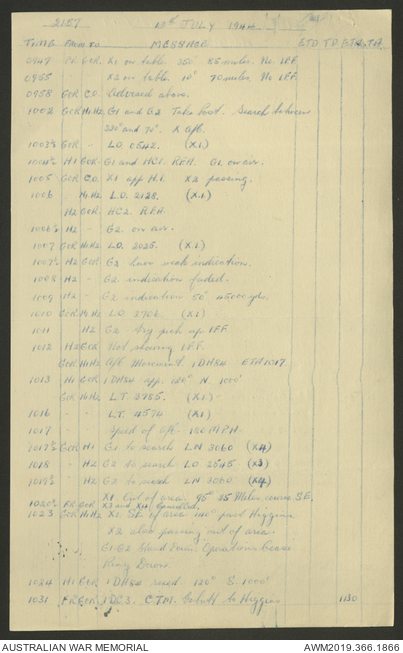 2157 12th JULY 1944
TIME FROM TO MESSAGE ETD TD ETA TA
0949 FR GOR X1 on table. 350° 85 miles. No IFF.
0955 " X2 on table. 10° 70 miles. No IFF.
0958 GOR C.O. above.
1002 GOR H1H2 G1 and G2 Take Post. Search between
320° and 70°. X a/c.
1003½ GOR " L.O. 0542. (X1.)
1004½ H1 GOR G1 and HC1. R.F.A. G1. on air.
1005 GOR C.O. X1 app H.1. X2 passing.
1006 " H1H2 L.O. 2128. (X1.)
H2 GOR HC2. R.F.A.
1006½ H2 " G2. on air.
1007 GOR H1H2 L.O. 2025. (X1.)
1007½ H2 GOR G2 have weak indication.
1008 H2 " G2 indication faded.
1009 H2 " G2 indication 50° 45000 yds.
1010 GOR H1H2 LO 2706. (X1)
1011 H2 G2 try pick up IFF.
1012 H2 GOR Not showing IFF.
GOR H1H2 A/c Movement. 1 DH84 ETA 1017.
1013 H1 GOR 1 DH84 app. 120° N. 1000'
GOR H1H2 L.T. 3785. (X1.)
1016 " " L.T. 4574 (X1)
1017 " Speed of a/c 180 MPH.
1017½ GOR H1 G1 to search LN 3060 (X4)
1018 " H2 G2 to search LO 2545 (X3)
1019½ " H2 G2 to search LN 3060 (X4)
1020½ FR GOR X1 Out of area 95° 55 Miles, course SE.
X3 and X4 cancelled.
1023 GOR H1H2 X1 SE of area 140° past Higgins
X2 also passing out of area
G1. G2 Stand Down. Operations cease
Ring Down.
1024 H1 GOR 1 DH84 recd. 120° S. 1000'
1031 FR GOR 1 DC3. to Higgins 1130
AUSTRALIAN WAR MEMORIAL AWM2019.366.1866